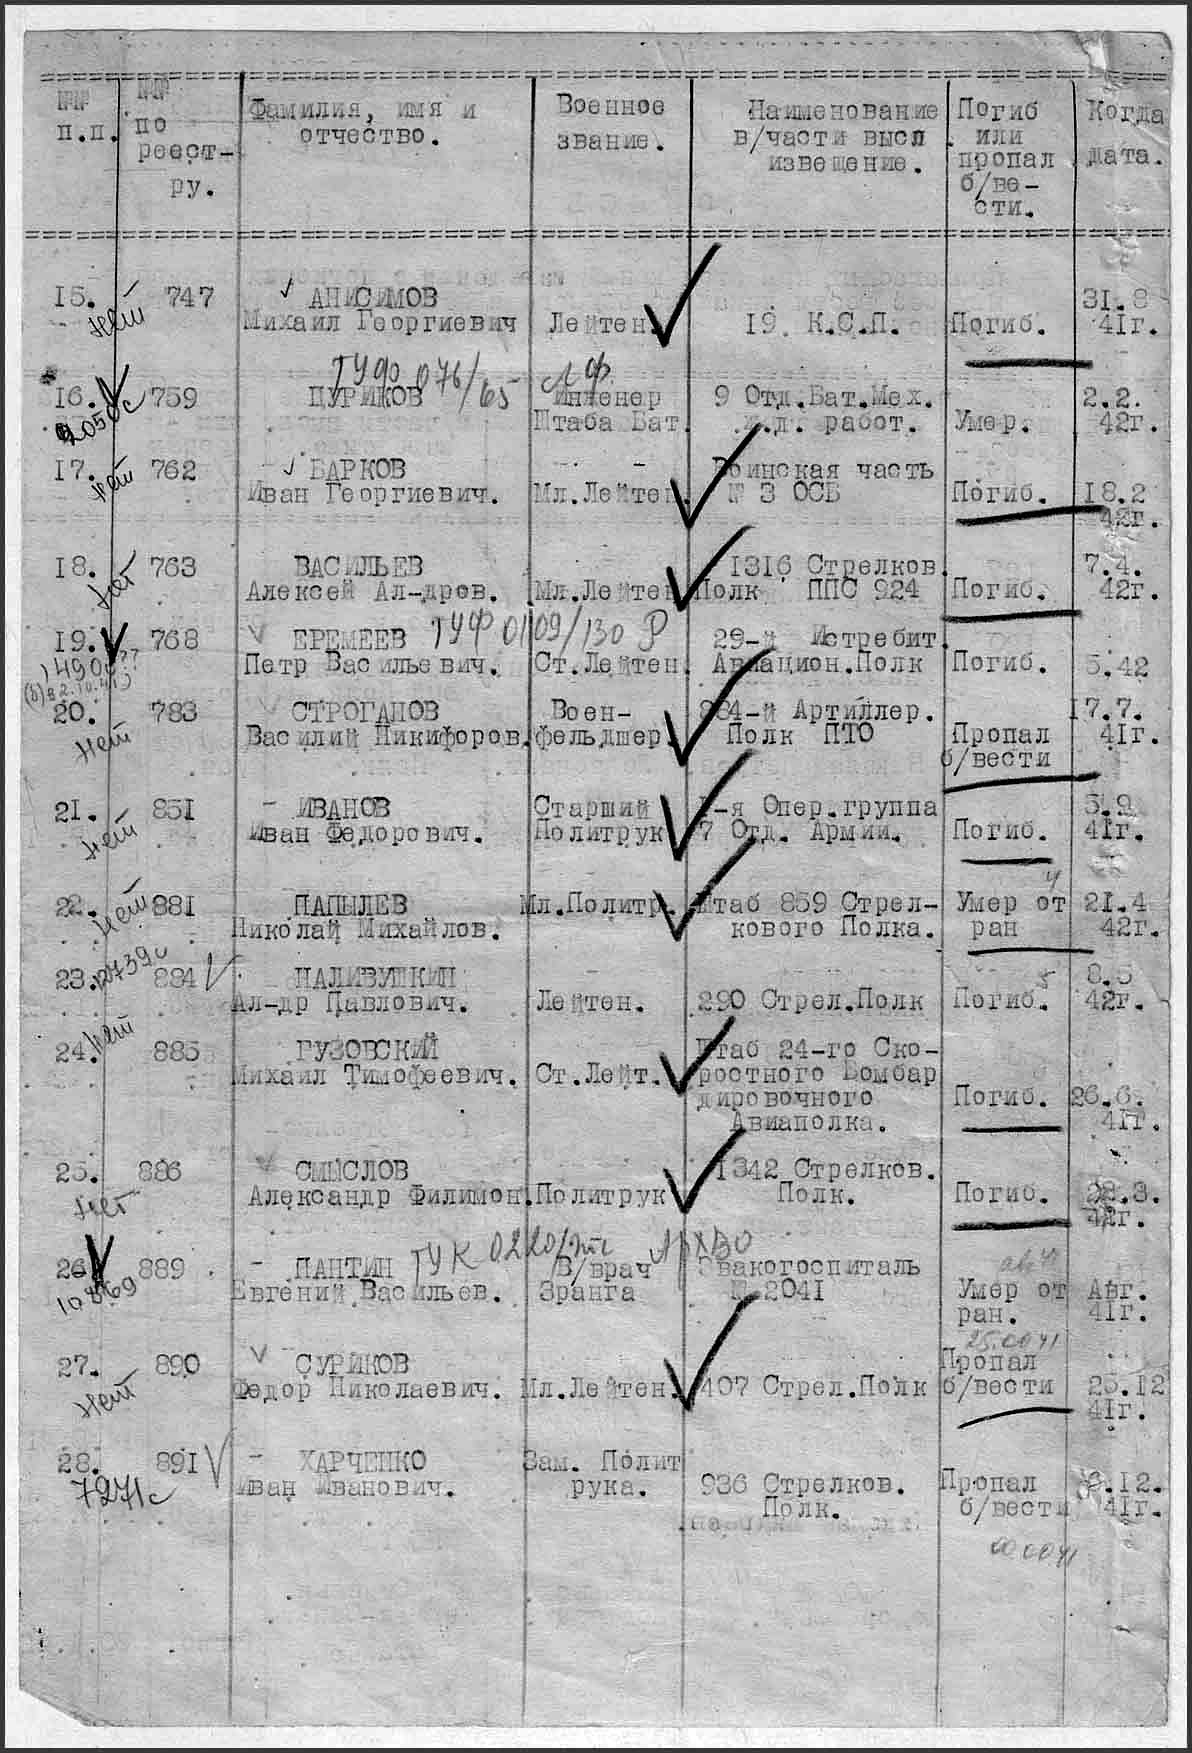 №№ п.п.
№№ по реест- ру.
Фамилия, имя и отчество.
Военное звание.
Наименование в/части высл извещение.
Погиб или пропал б/ве- сти.
Когда дата.
15. 747 АНИСИМОВ 31.8
нет Михаил Георгиевич Лейтен. 19. К.С.П. Погиб. 41г.
ГУФо 076/65
16. 759 ЦУРИКОВ Инженер 9 Отд.Бат.Мех. 2.2.
Штаба Бат. ж.д. работ. Умер. 42г.
17. 762 БАРКОВ Воинская часть
нет Иван Георгиевич. Мл.Лейтен. № 3 ОСБ Погиб. 18.2
42г.
18. 763 ВАСИЛЬЕВ 1316 Стрелков. 7.4.
нет Алексей Ал-дров. Мл.Лейтен Полк ППС 924 Погиб. 42г.
19. 768 ЕРЕМЕЕВ ГУФ 0109/130 29-й Истребит.
Петр Васильевич. Ст.Лейтен. Авиацион.Полк Погиб. 5.42
20. 783 СТРОГАНОВ Воен- 884-й Артиллер. 17.7.
нет Василий Никифоров. фельдшер. Полк ПТО Пропал 41г.
б/вести
21. 851 - ИВАНОВ Старший 1-я Опер.группа 5.9
нет Иван Федорович. Политрук 7 Отд. Армии. Погиб. 41г.
22. 881 ПАПЫЛЕВ Мл.Политр. Штаб 859 Стрел- Умер от 21.4
нет Николай Михайлов. кового Полка. ран 42г.
23. 884 НАЛИВУШКИН 8.5
Ал-др Павлович. Лейтен. 290 Стрел.Полк Погиб. 42г.
24. 885 ГУЗОВСКИЙ Штаб 24-го Ско-
нет Михаил Тимофеевич. Ст.Лейт. ростного Бомбар
дировочного Погиб. 26.6.
Авиаполка. 41г.
25. 886 СМЫСЛОВ 1342 Стрелков.
нет Александр Филимон. Политрук Полк. Погиб. 22.3.
42г.
26 889 - ПАНТИН ГУК 0220/ В/врач Эвакогоспиталь
Евгений Васильев. 3ранга № 2041 Умер от Авг.
ран. 41г.
27. 890 СУРИКОВ Пропал
нет Федор Николаевич. Мл.Лейтен. 407 Стрел.Полк б/вести 25.12
41г.
28. 891 - ХАРЧЕНКО Зам. Полит
7271с Иван Иванович. рука. 936 Стрелков. Пропал 6.12.
Полк. б/вести 41г.